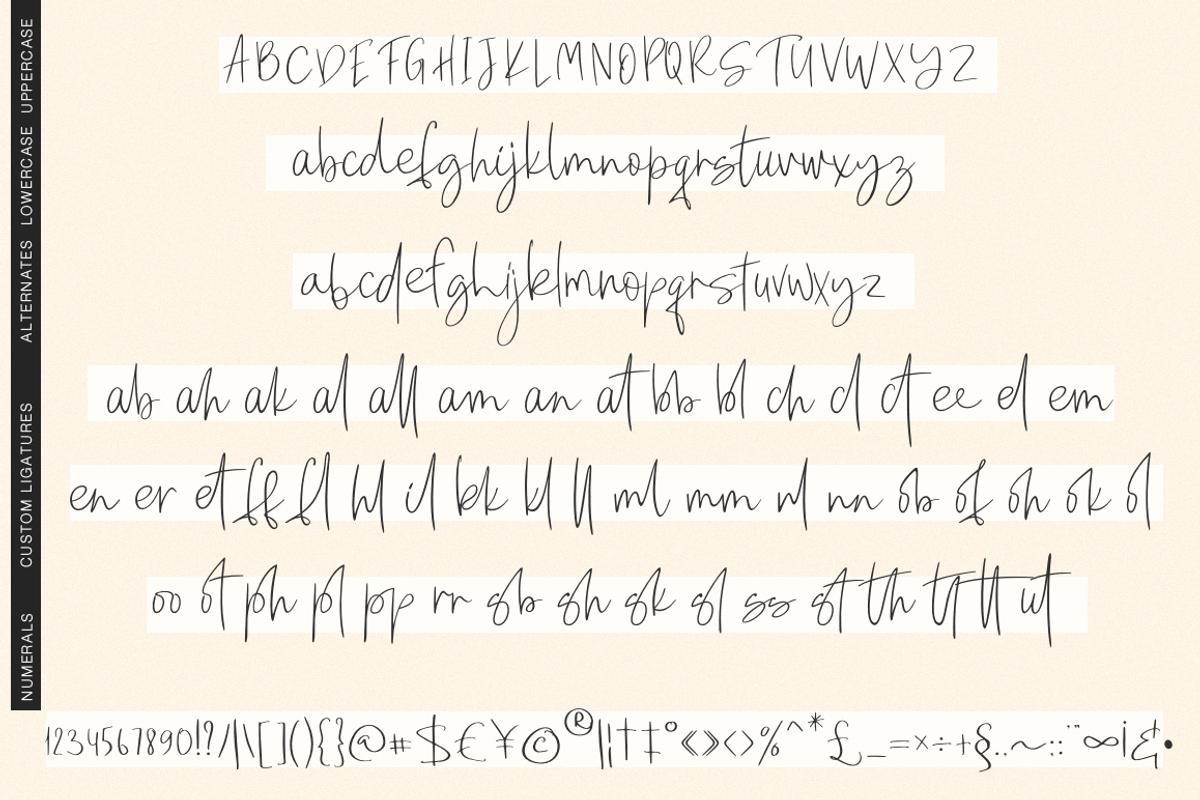 UPPERCASE
ABCDEFGHIJKLMNOPQRSTUVWXYZ
LOWERCASE
abcdefghijklmnopqrstuvwxyz
ALTERNATES
abcdefghijklmnopqrstuvwxyz
CUSTOM LIGATURES
ab ah ak al all am an at bb bl ch cl ct ee el em
en er et ff fl hl il kk kl ll ml mm nl nn ob of oh ok ol
oo ot ph pl pp rr sb sh sk sl ss st th tt ut
NUMERALS
1234567890!?/|\[](){}@#$€¥©®|¦†‡°«»‹›%^*£_=×÷+§..~::¨∞¡&•